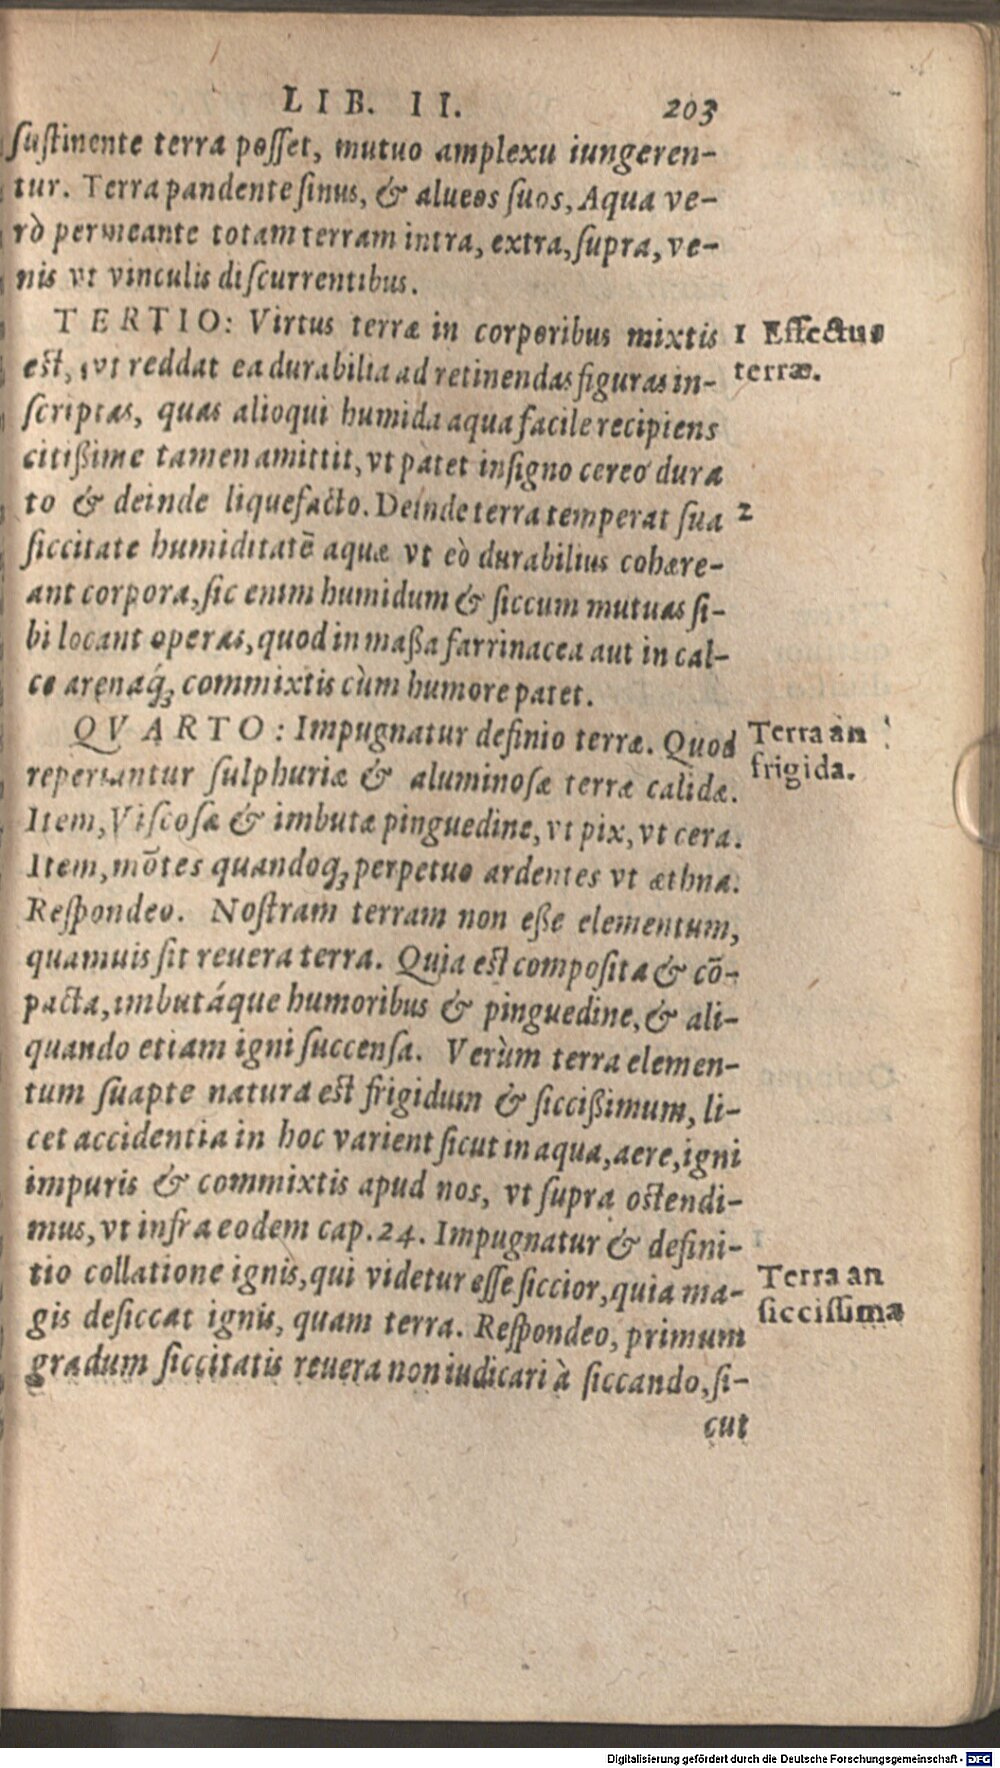 LIB. II. 203
sustinente terra posset, mutuo amplexu iungeren-
tur. Terra pandente sinus, & alueos suos, Aqua ve-
rò permeante totam terram intra, extra, supra, ve-
nis vt vinculis discurrentibus.
TERTIO: Virtus terræ in corporibus mixtis
1 Effectus
est, vt reddat ea durabilia ad retinendas figuras in-
terræ.
scriptas, quas alioqui humida aqua facile recipiens
citißime tamen amittit, vt patet in signo cereo dura
to & deinde liquefacto. Deinde terra temperat sua
2
siccitate humiditatē aquæ vt eò durabilius cohære-
ant corpora, sic enim humidum & siccum mutuas si-
bi locant operas, quod in maßa farrinacea aut in cal-
ce arenáq; commixtis cùm humore patet.
QVARTO: Impugnatur definio terræ. Quod
Terra an
reperiantur sulphuriæ & aluminosæ terræ calidæ.
frigida.
Item, Viscosæ & imbutæ pinguedine, vt pix, vt cera.
Item, mōtes quandoq; perpetuo ardentes vt æthna.
Respondeo. Nostram terram non eße elementum,
quamuis sit reuera terra. Quia est composita & cō-
pacta, imbutáque humoribus & pinguedine, & ali-
quando etiam igni succensa. Verùm terra elemen-
tum suapte natura est frigidum & siccißimum, li-
cet accidentia in hoc varient sicut in aqua, aere, igni
impuris & commixtis apud nos, vt supra ostendi-
mus, vt infra eodem cap. 24. Impugnatur & defini-
tio collatione ignis, qui videtur esse siccior, quia ma-
Terra an
gis desiccat ignis, quam terra. Respondeo, primum
siccissima
gradum siccitatis reuera non iudicari à siccando, si-
cut
Digitalisierung gefördert durch die Deutsche Forschungsgemeinschaft - DFG